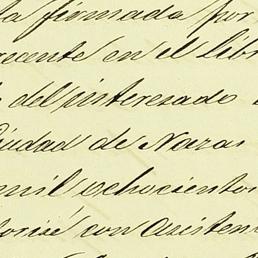 ta firmada por
recente en el libr
del interesado
Ciudad de Nazas
mil ochocientos
torisé con asisten